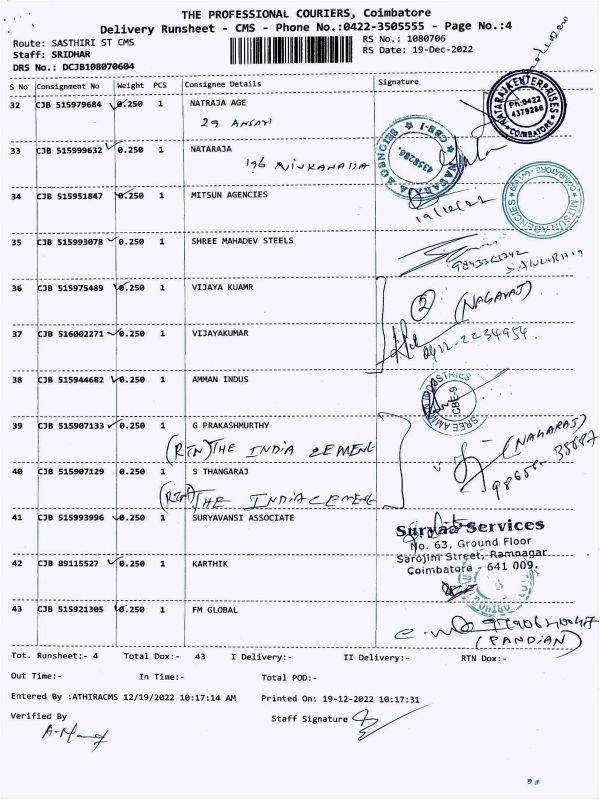 THE PROFESSIONAL COURIERS, Coimbatore
Delivery Runsheet - CMS - Phone No.:0422-3505555 - Page No.:4
Route: SASTHIRI ST CMS
RS No.: 1080706
Staff: SRIDHAR
RS Date: 19-Dec-2022
DRS No.: DCJB108070604
S No Consignment No Weight PCS Consignee Details Signature
32 CJB 515979684 0.250 1 NATRAJA AGE
29 ANSARI
NATARAJA ENTERPRISES
Ph:0422
4379286
COIMBATORE
33 CJB 515999632 0.250 1 NATARAJA
196
NATARAJA AGENCIES CBE-1
4359286
34 CJB 515951847 0.250 1 MITSUN AGENCIES
19/12/22
MITSUN AGENCIES
35 CJB 515993078 0.250 1 SHREE MAHADEV STEELS
36 CJB 515975489 0.250 1 VIJAYA KUAMR
2 (NAGARAJ)
37 CJB 516002271 0.250 1 VIJAYAKUMAR
0422-2234954.
38 CJB 515944682 0.250 1 AMMAN INDUS
SREE AMMAN INDUSTRIES
CBE-9
39 CJB 515907133 0.250 1 G PRAKASHMURTHY
(RTN) THE INDIA CEMENT
(NAGARAJ)
40 CJB 515907129 0.250 1 S THANGARAJ
(RTN) THE INDIA CEMENT
41 CJB 515993996 0.250 1 SURYAVANSI ASSOCIATE
Suryaa Services
No. 63, Ground Floor
Sarojini Street, Ramnagar
Coimbatore - 641 009.
42 CJB 89115527 0.250 1 KARTHIK
43 CJB 515921305 0.250 1 FM GLOBAL
(PANDIAN)
Tot. Runsheet:- 4 Total Dox:- 43 I Delivery:- II Delivery:- RTN Dox:-
Out Time:- In Time:- Total POD:-
Entered By :ATHIRACMS 12/19/2022 10:17:14 AM Printed On: 19-12-2022 10:17:31
Verified By Staff Signature